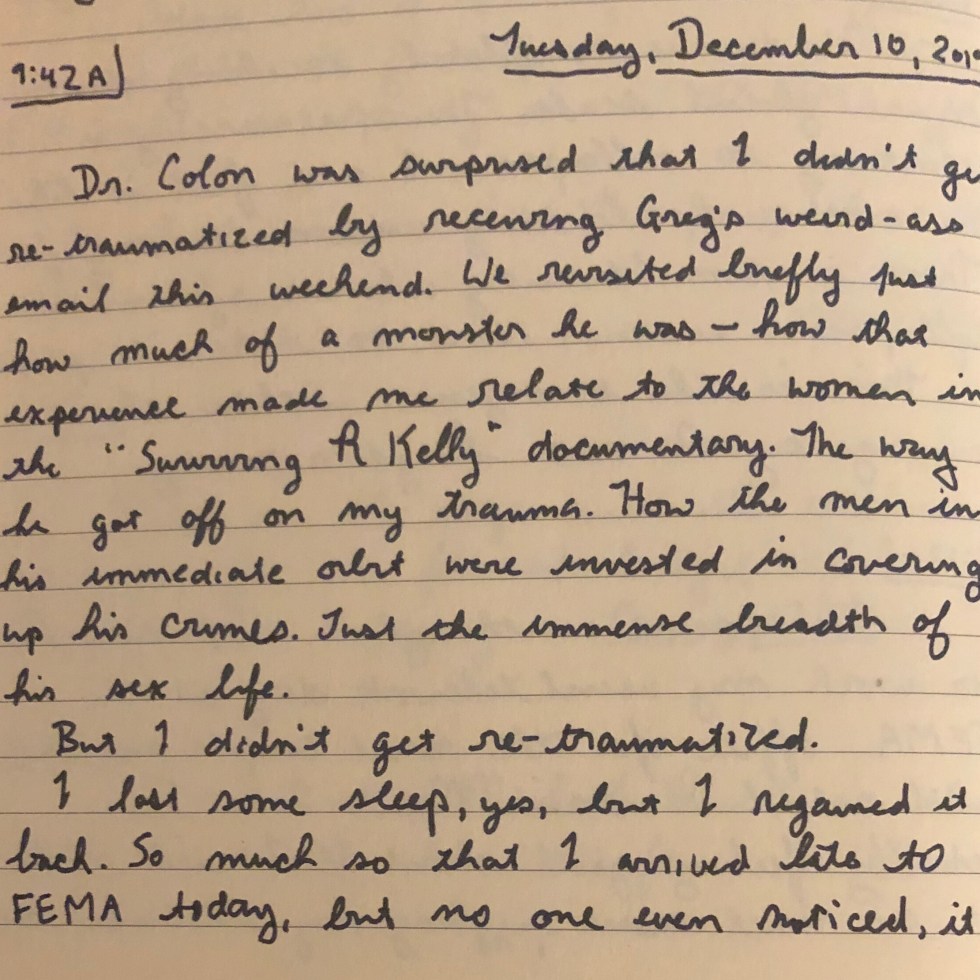 9:42A
Tuesday, December 10, 201
Dr. Colon was surprised that I didn't ge
re-traumatized by receiving Greg's weird-ass
email this weekend. We revisited briefly just
how much of a monster he was – how that
experience made me relate to the women in
the "Surviving R Kelly" documentary. The way
he got off on my trauma. How the men in
his immediate orbit were invested in covering
up his crimes. Just the immense breadth of
his sex life.
But I didn't get re-traumatized.
I lost some sleep, yes, but I regained it
back. So much so that I arrived late to
FEMA today, but no one even noticed, it